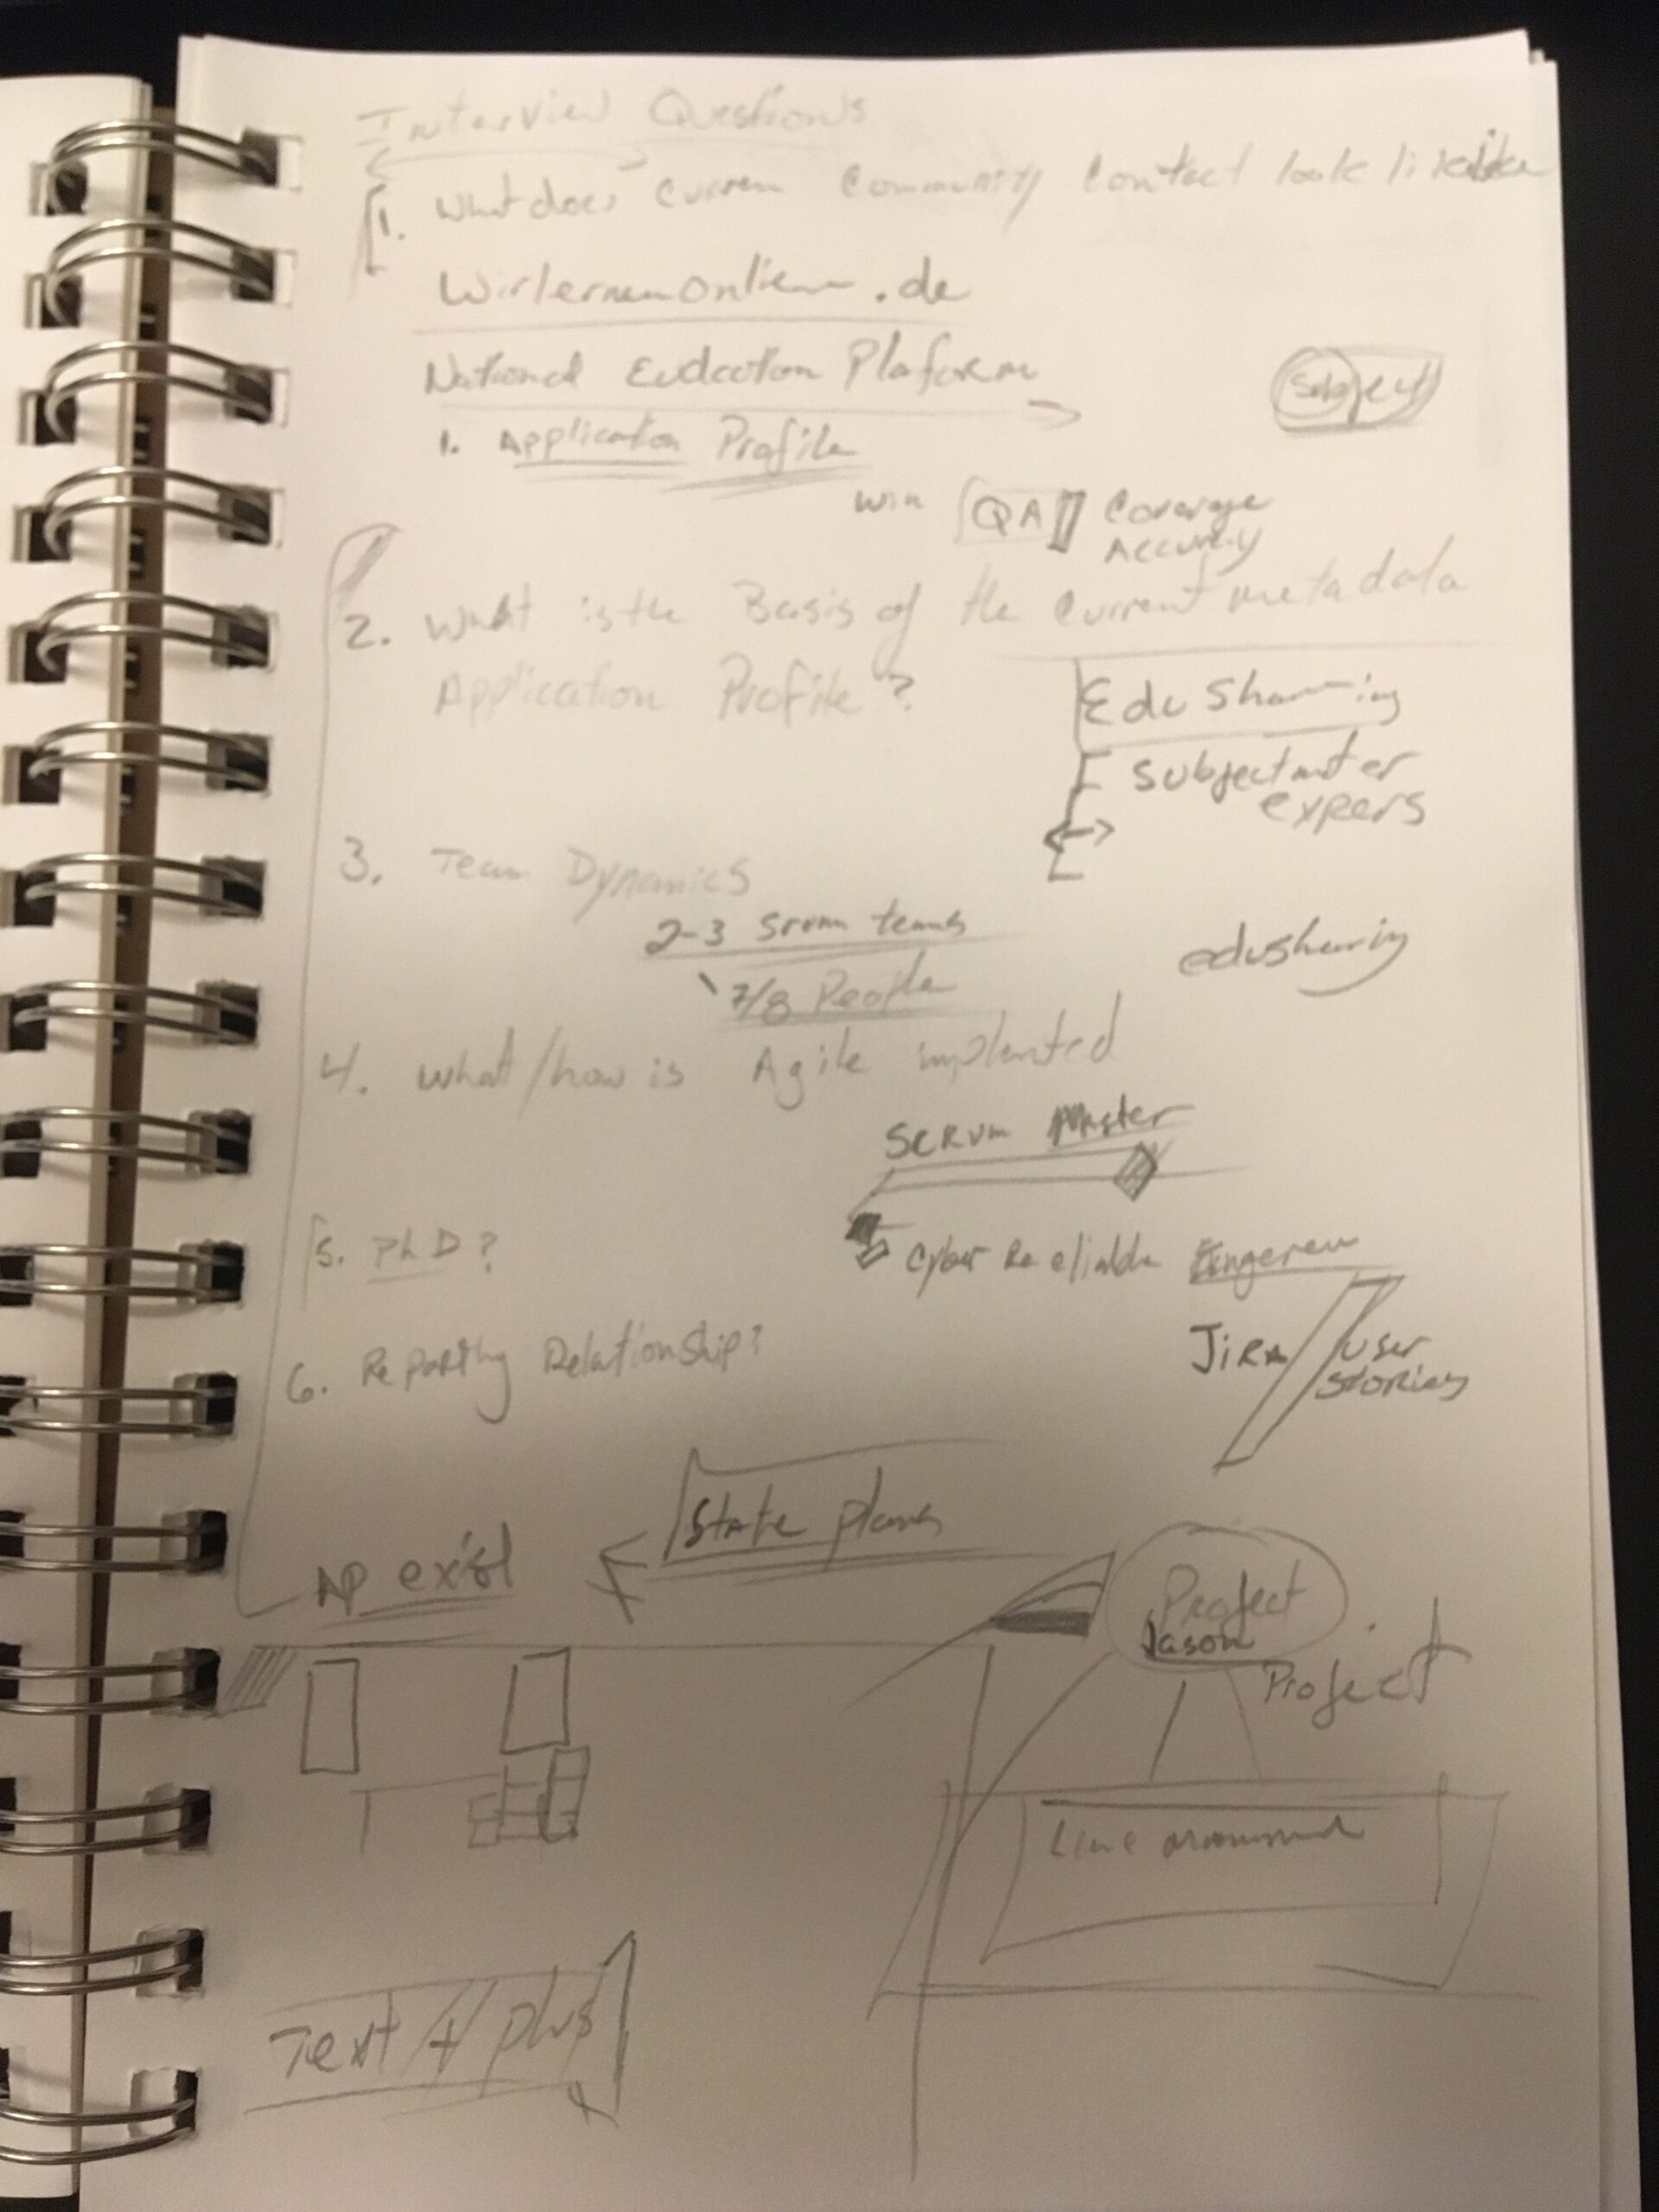 Interview Questions
1. What does current Community Contact look like
Wirlernenonline.de
National Eudcation Plaform
Subject
1. Application Profile
win QA Coverage
Accuracy
2. What is the Basis of the current metadata
Application Profile?
Edu Sharing
Subject matter
expers
3. Team Dynamics
2-3 Scrum teams
7/8 People
edusharing
4. What/how is Agile implented
SCRUM Master
5. PhD?
Cyber Reeliable
JIRA
User
Stories
6. Reporting Relationship?
State plans
AP exist
Project
Jason
Project
Text + plus